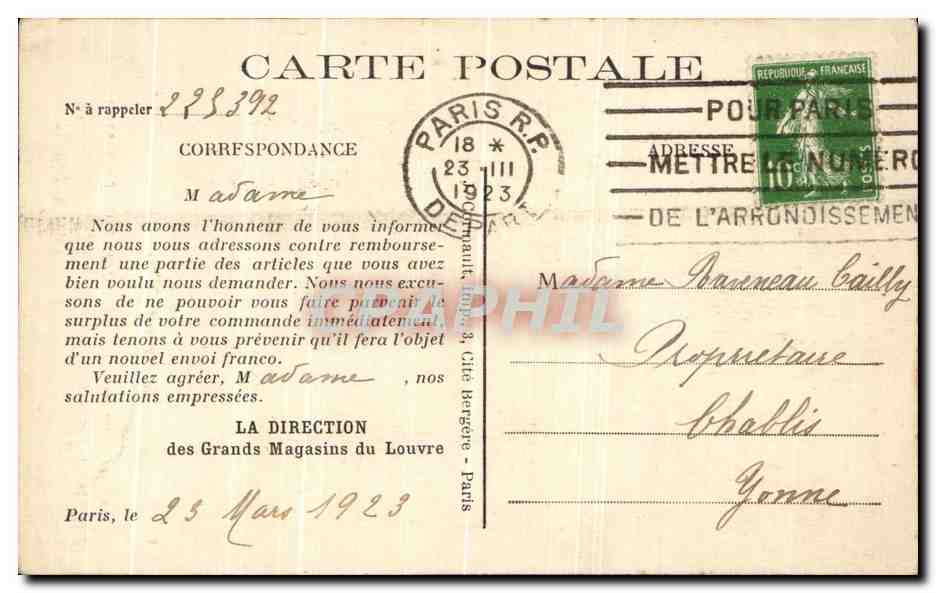 CARTE POSTALE
N° à rappeler 225392
CORRESPONDANCE
Madame
Nous avons l'honneur de vous informer
que nous vous adressons contre rembourse-
ment une partie des articles que vous avez
bien voulu nous demander. Nous nous excu-
sons de ne pouvoir vous faire parvenir le
surplus de votre commande immédiatement,
mais tenons à vous prévenir qu'il fera l'objet
d'un nouvel envoi franco.
Veuillez agréer, Madame, nos
salutations empressées.
LA DIRECTION
des Grands Magasins du Louvre
Paris, le 23 Mars 1923
imp. 3, Cité Bergère - Paris
PARIS R.P.
18 *
23 III
1923
REPUBLIQUE FRANÇAISE
10c
POUR PARIS
ADRESSE
METTRE LE NUMERO
DE L'ARRONDISSEMEN
Madame Cailly
Propriétaire
Chablis
Yonne
CPAPHIL